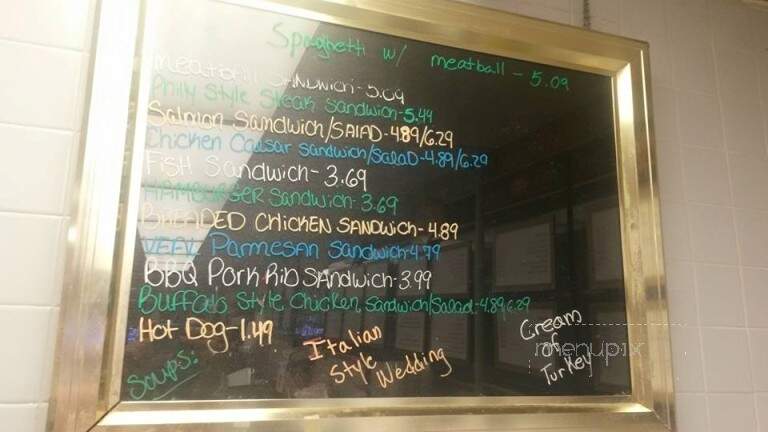 Spaghetti w/ meatball - 5.09
Meatball SANDWICH - 5.09
Philly Style Steak Sandwich - 5.49
Salmon Sandwich/SALAD - 4.89/6.29
Chicken Caesar Sandwich/SalaD - 4.89/6.29
FISH Sandwich - 3.69
HAMBURGER Sandwich - 3.69
BREADED CHICKEN SANDWICH - 4.89
VEAL Parmesan Sandwich - 4.79
BBQ Pork Rib SANDwich - 3.99
Buffalo Style Chicken Sandwich/Salad - 4.89/6.29
Hot Dog - 1.49
Soups:
Italian Style Wedding
Cream of Turkey
menupix